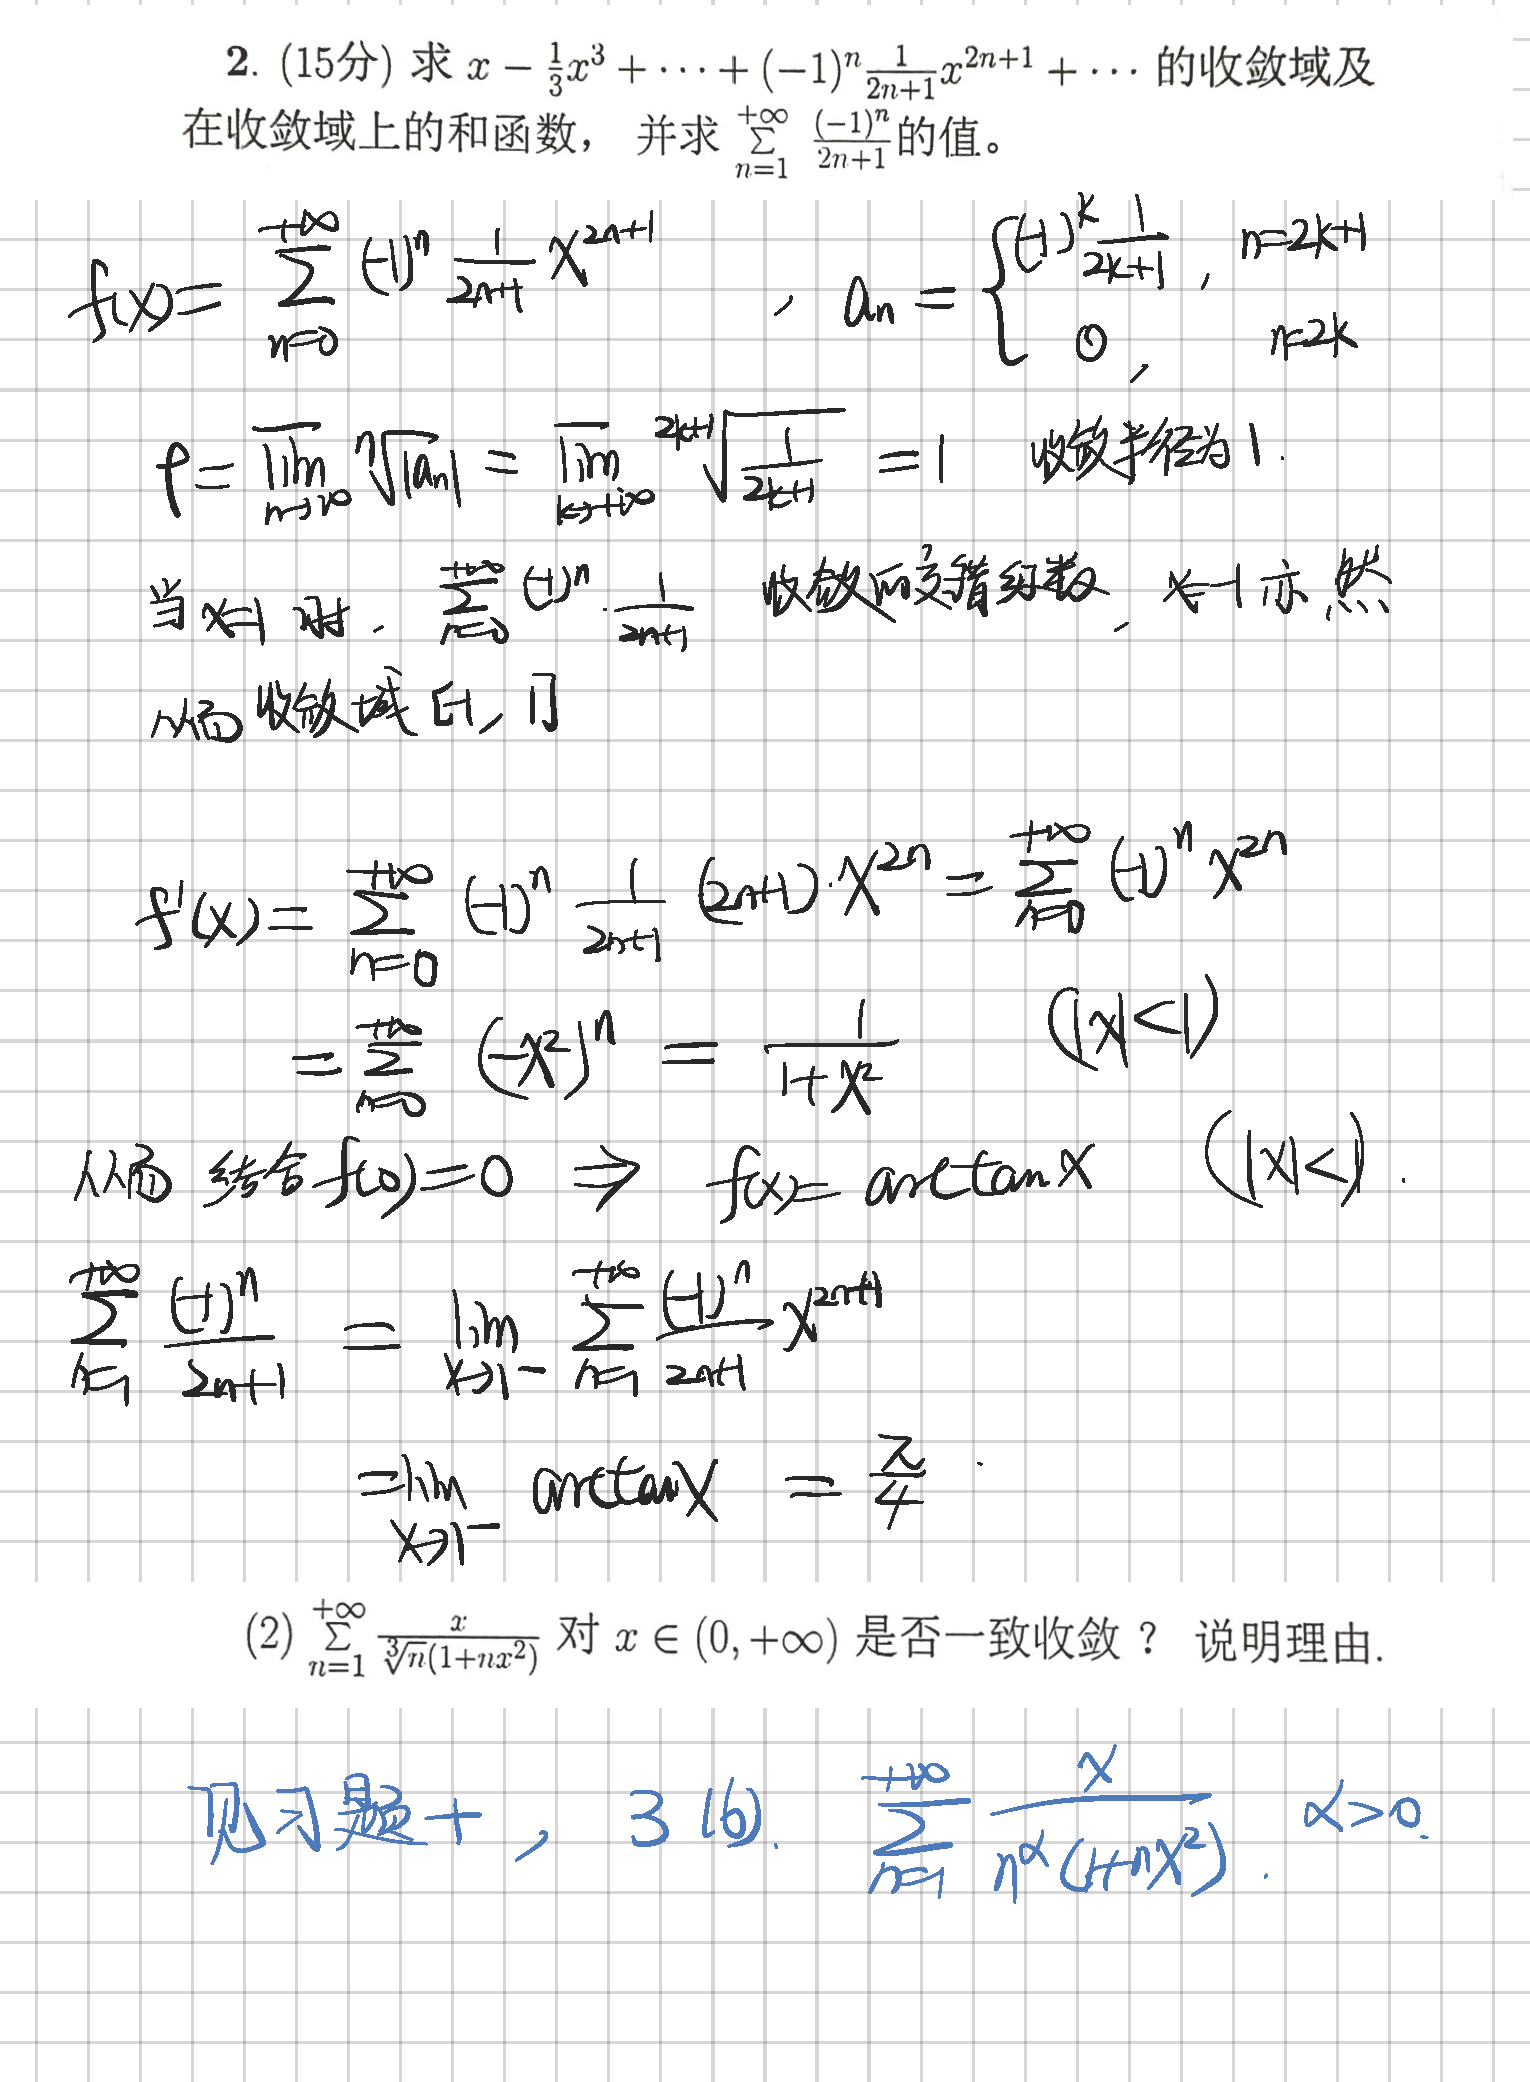 2. (15分) 求 x − 1/3 x³ + ··· + (−1)ⁿ 1/(2n+1) x²ⁿ⁺¹ + ··· 的收敛域及
在收敛域上的和函数， 并求 ∑_{n=1}^{+∞} (−1)ⁿ/(2n+1) 的值。
f(x) = ∑_{n=0}^{+∞} (−1)ⁿ 1/(2n+1) x²ⁿ⁺¹ , aₙ = { (−1)ᵏ 1/(2k+1), n=2k+1
0, n=2k
ρ = \overline{lim}_{n→∞} ⁿ√|aₙ| = \overline{lim}_{k→+∞} ²ᵏ⁺¹√(1/(2k+1)) = 1 收敛半径为1.
当 x=1 时. ∑_{n=0}^{+∞} (−1)ⁿ · 1/(2n+1) 收敛的交错级数, x=−1 亦然
从而收敛域 [−1, 1]
f'(x) = ∑_{n=0}^{+∞} (−1)ⁿ 1/(2n+1) (2n+1)·x²ⁿ = ∑_{n=0}^{+∞} (−1)ⁿ x²ⁿ
= ∑_{n=0}^{+∞} (−x²)ⁿ = 1/(1+x²) (|x|<1)
从而 结合 f(0)=0 ⇒ f(x) = arctan x (|x|<1).
∑_{n=1}^{+∞} (−1)ⁿ/(2n+1) = lim_{x→1⁻} ∑_{n=1}^{+∞} (−1)ⁿ/(2n+1) x²ⁿ⁺¹
= lim_{x→1⁻} arctan x = π/4 .
(2) ∑_{n=1}^{+∞} x/(∛n(1+nx²)) 对 x ∈ (0, +∞) 是否一致收敛？ 说明理由.
见习题十, 3 (6). ∑_{n=1}^{+∞} x/(n^α(1+nx²)). α>0.